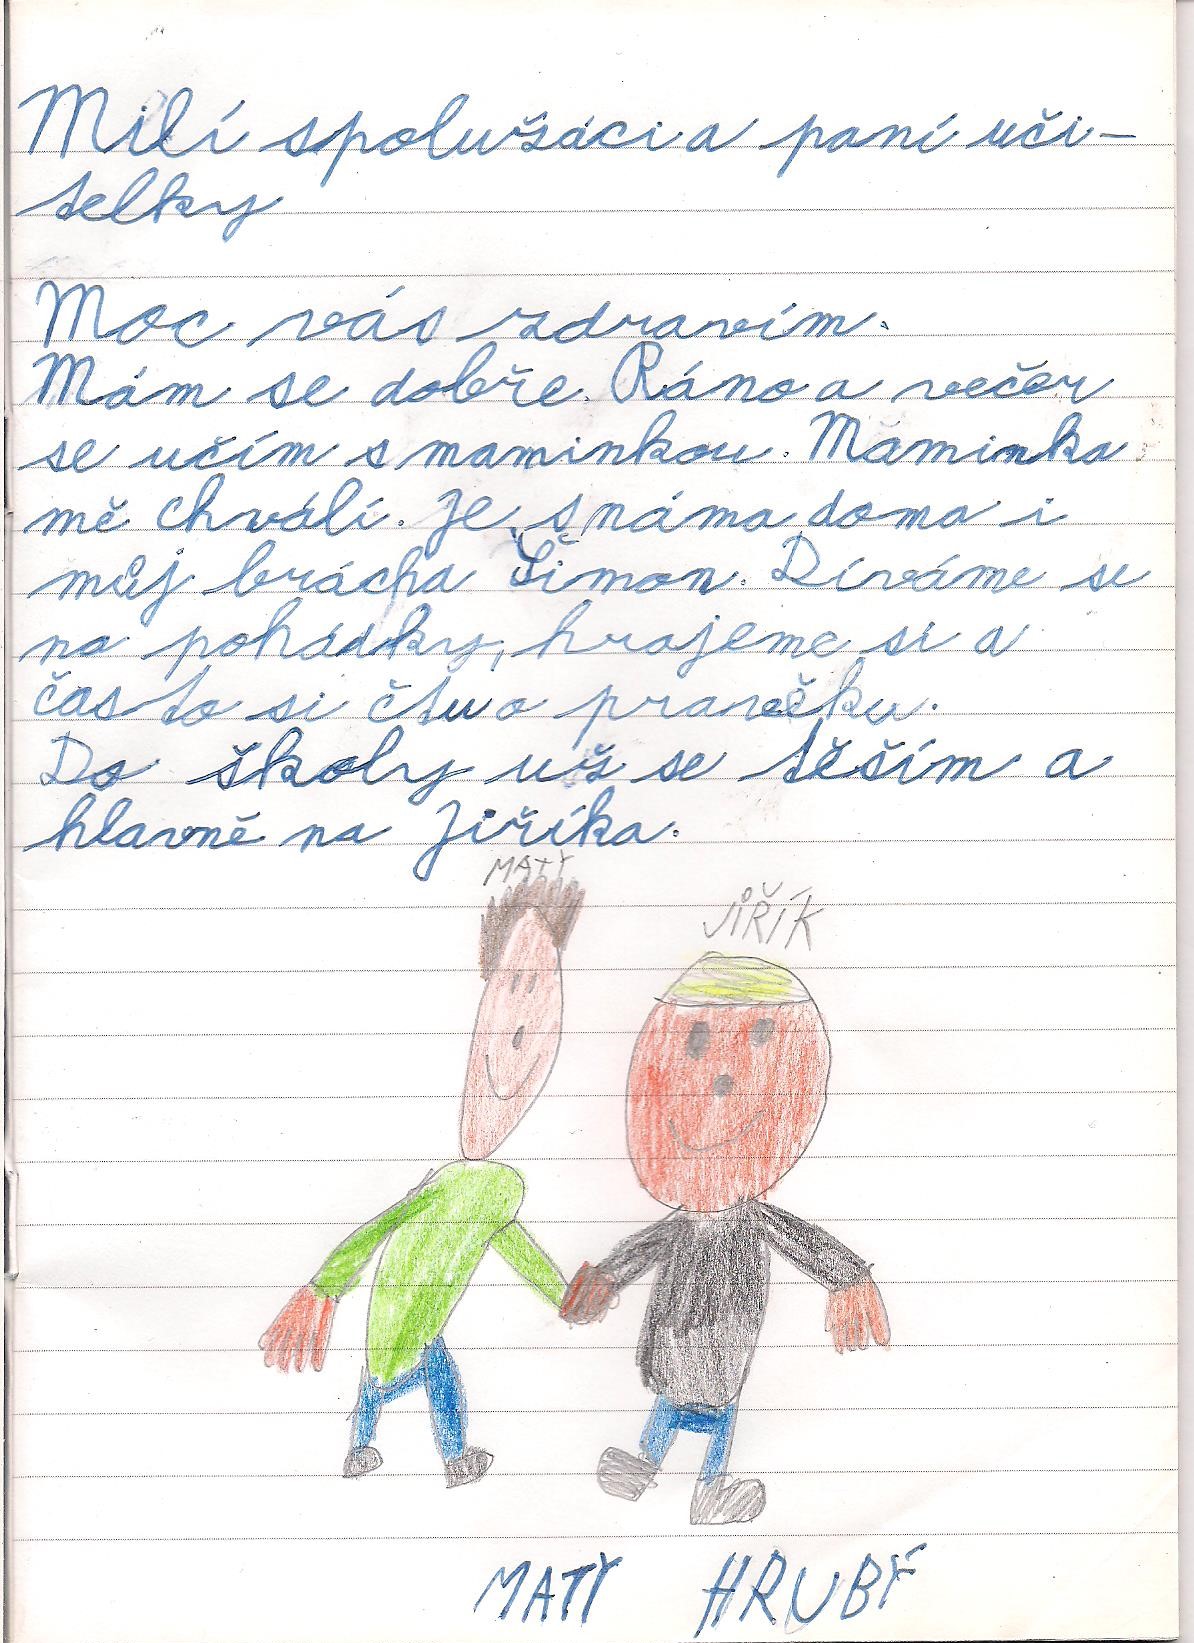 Milí spolužáci a paní uči-
telky
Moc vás zdravím.
Mám se dobře. Ráno a večer
se učím s maminkou. Maminka
mě chválí. Je s náma doma i
můj brácha Šimon. Díváme se
na pohádky, hrajeme si a
často si čtu o pravěku.
Do školy už se těším a
hlavně na Jiříka.
MATY
JIŘÍK
MATY HRUBÝ